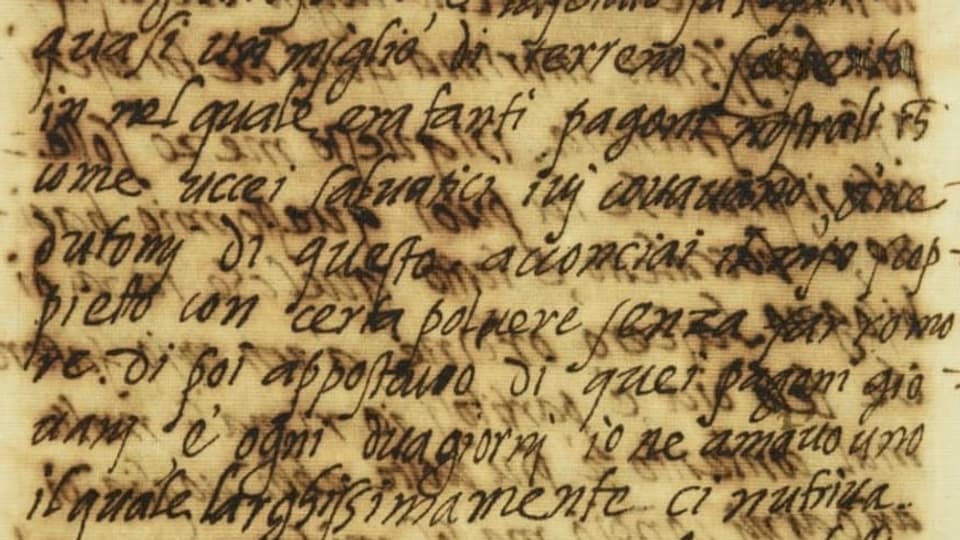 quasi un miglio di terreno
in nel quale era tanti pagoni nostrali et
come uccei saluatici iuj couauano; a'ue
dutomj di questo acconciai il mio scop
pietto con certa poluere senza far romo
re. di poi appostauo di quei pagoni gio
uanj è ogni duagiornj io ne amauo uno
il quale larghissimamente ci nutriua.